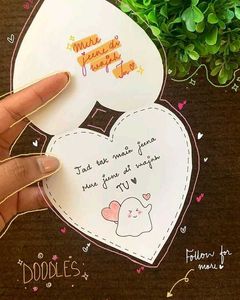 Mere
jeene di
wajah
Tu
Tad tak main jeena
Mere jeene di wajah
TU
DOODLES
Follow for
more